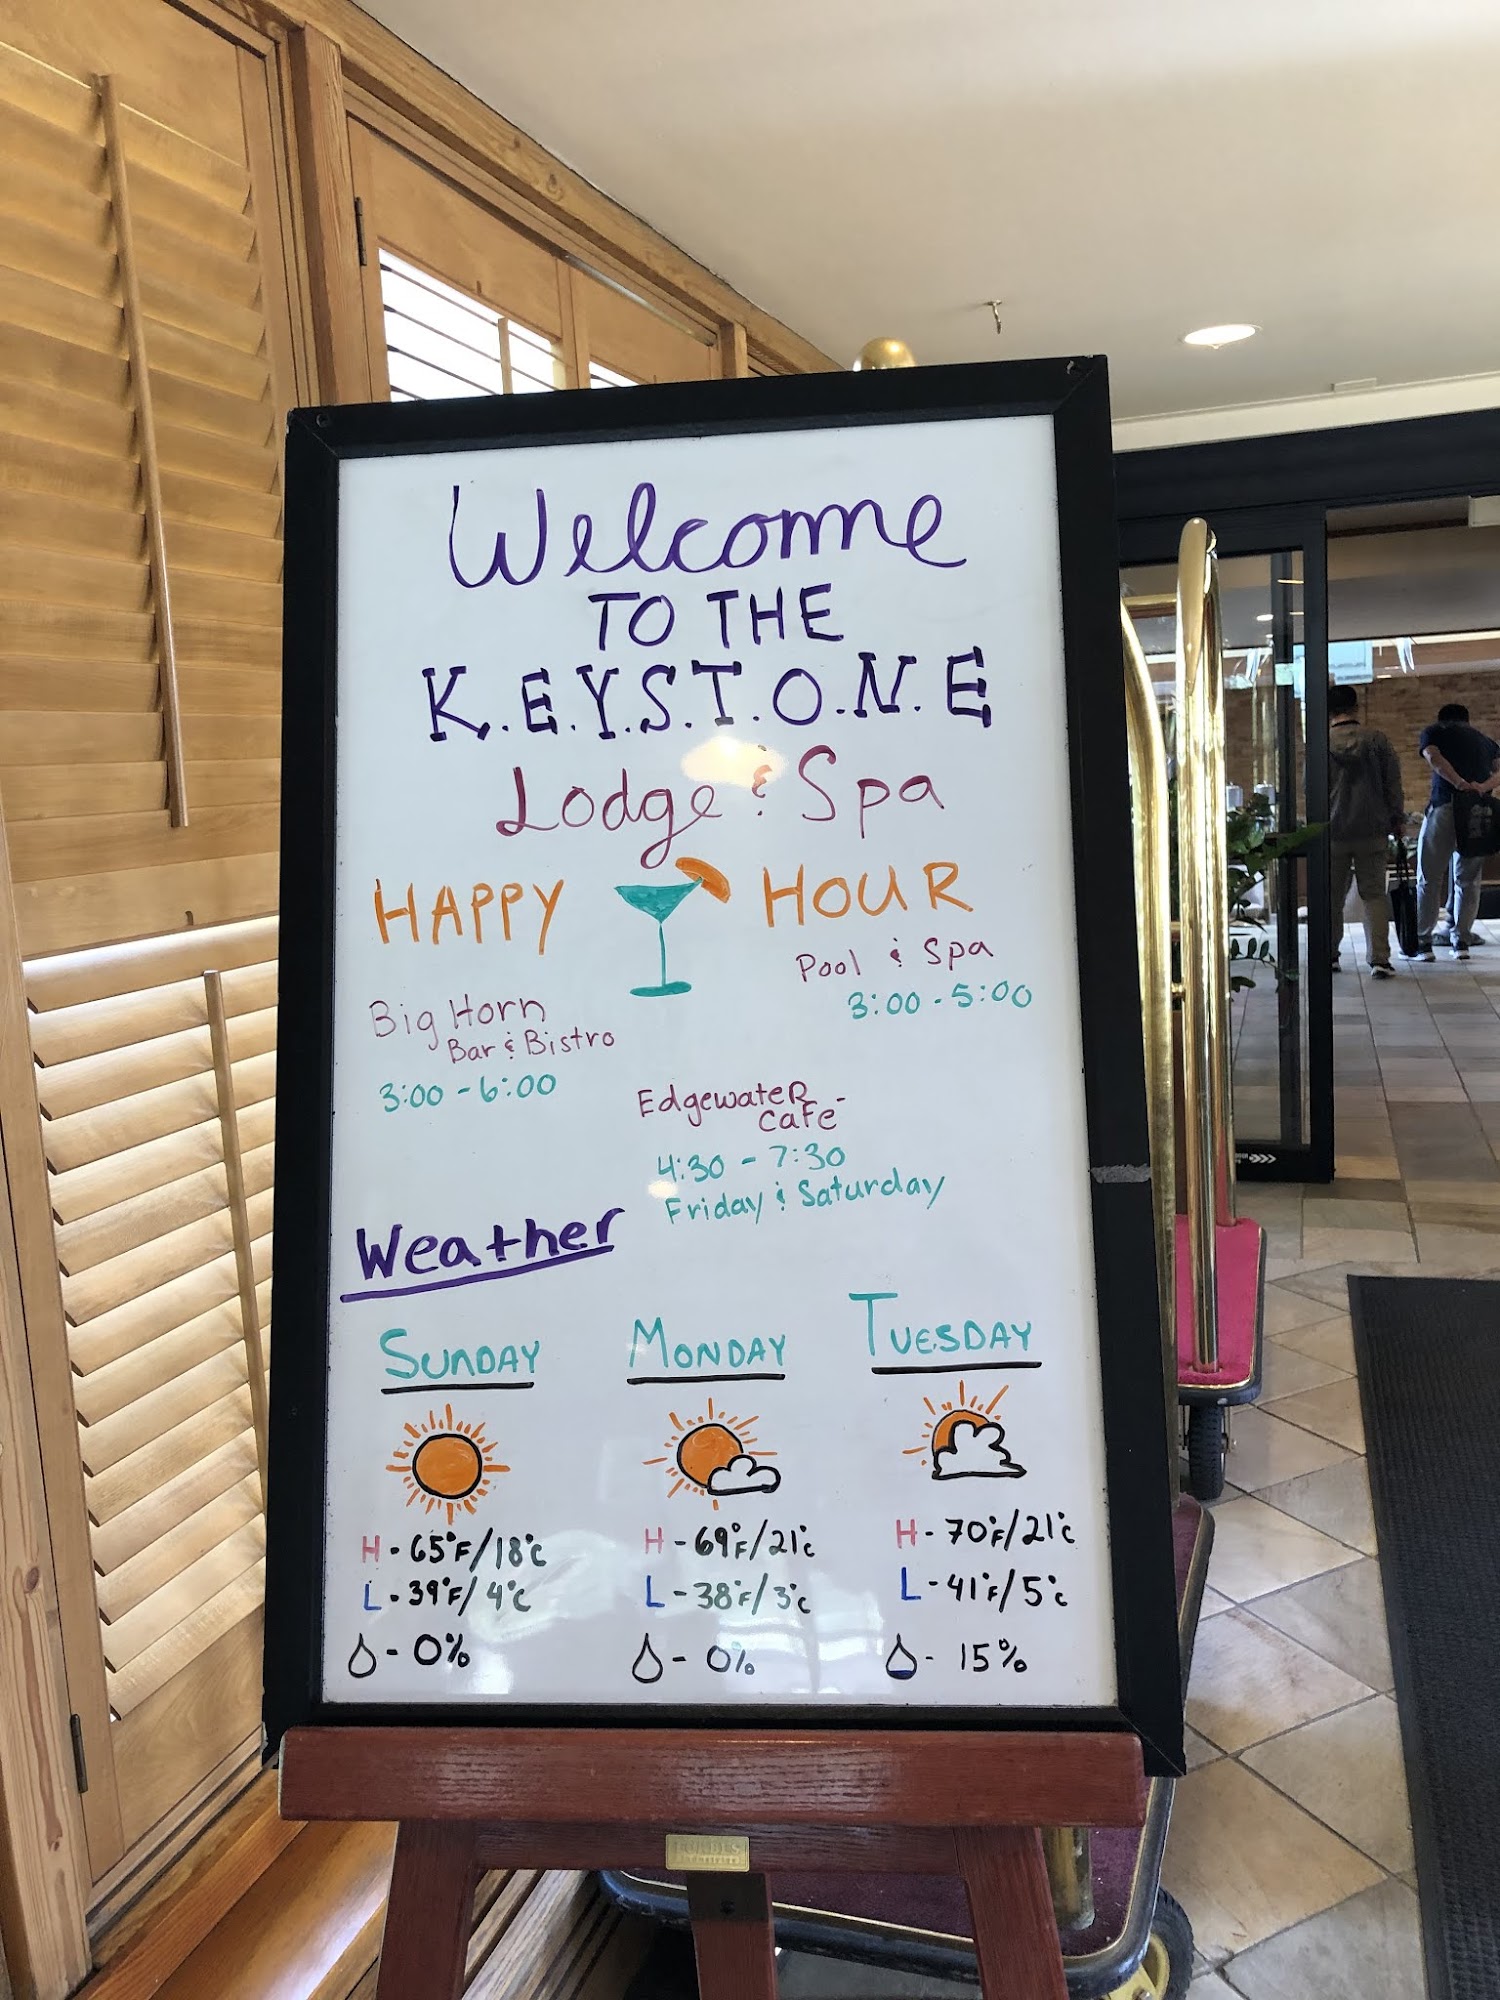 Welcome
TO THE
K.E.Y.S.T.O.N.E
Lodge & Spa
HAPPY HOUR
Pool & Spa
3:00 - 5:00
Big Horn
Bar & Bistro
3:00 - 6:00
EdgewateR
Cafe
4:30 - 7:30
Friday & Saturday
Weather
SUNDAY MONDAY TUESDAY
H - 65°F/18°C H - 69°F/21°C H - 70°F/21°C
L - 39°F/4°C L - 38°F/3°C L - 41°F/5°C
- 0% - 0% - 15%